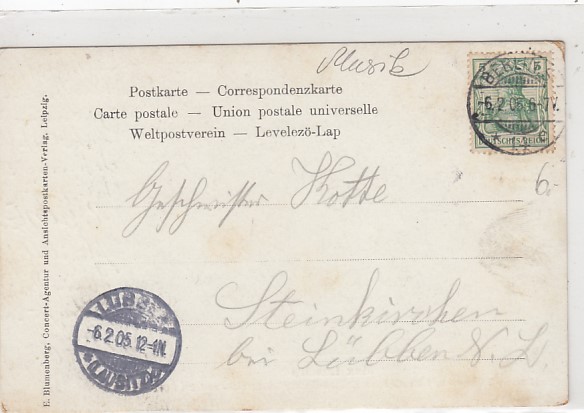 Musik
Postkarte — Correspondenzkarte
Carte postale — Union postale universelle
Weltpostverein — Levelező-Lap
5 5
DEUTSCHES REICH
-6.2.05.6-7V.
Geschwister Kotte
6.-
Steinkirchen
bei Lübben N. Ls.
LÜBBEN
-6.2.05.12-1N.
*(LAUSITZ)*
E. Blumenberg, Concert-Agentur und Ansichtspostkarten-Verlag, Leipzig.